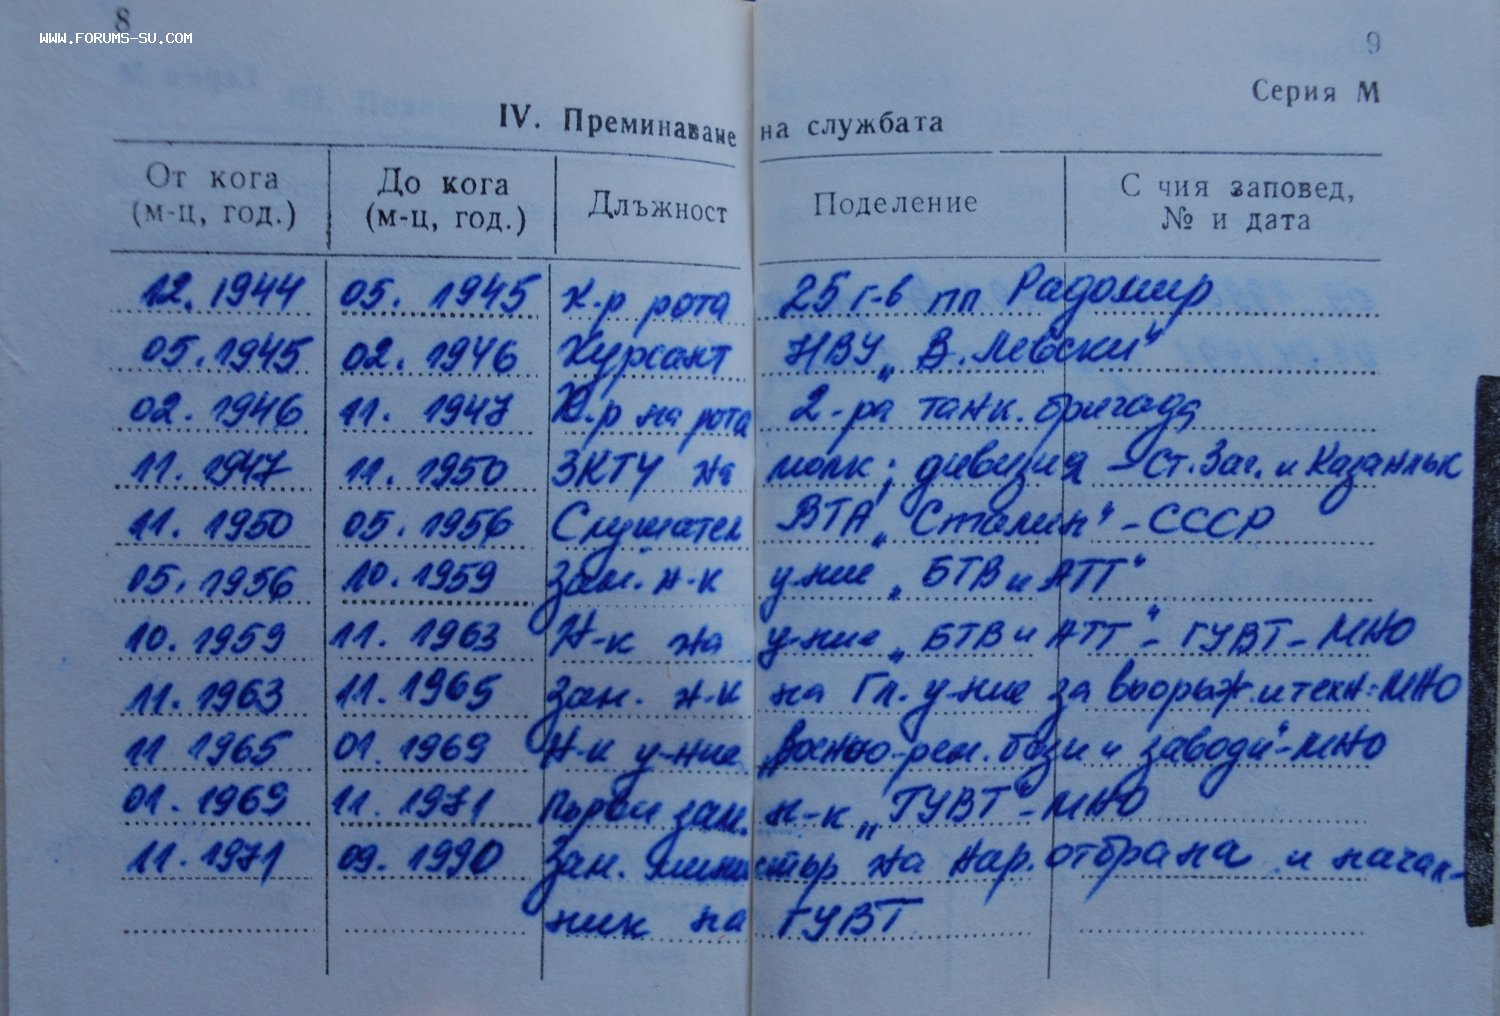 8
WWW.FORUMS-SU.COM
9
Серия М
IV. Преминаване на службата
От кога (м-ц, год.) До кога (м-ц, год.) Длъжност Поделение С чия заповед, № и дата
12. 1944 05. 1945 К-р рота 25 г-в пп Радомир
05. 1945 02. 1946 Курсант НВУ „В. Левски"
02. 1946 11. 1947 К-р на рота 2-ра танк. бригада
11. 1947 11. 1950 ЗКТЧ на полк; дивизия - Ст. Заг. и Казанлък
11. 1950 05. 1956 Слушател ВТА „Сталин" - СССР
05. 1956 10. 1959 Зам. н-к у-ние „БТВ и АТТ"
10. 1959 11. 1963 Н-к на у-ние „БТВ и АТТ" - ГУВТ - МНО
11. 1963 11. 1965 Зам. н-к на Гл. у-ние за въоръж. и техн. МНО
11 1965 01. 1969 Н-к у-ние „Военно-рем. бази и заводи" - МНО
01. 1969 11. 1971 Първи зам. н-к „ГУВТ" - МНО
11. 1971 09. 1990 Зам. министър на нар. отбрана и начал-
ник на ГУВТ